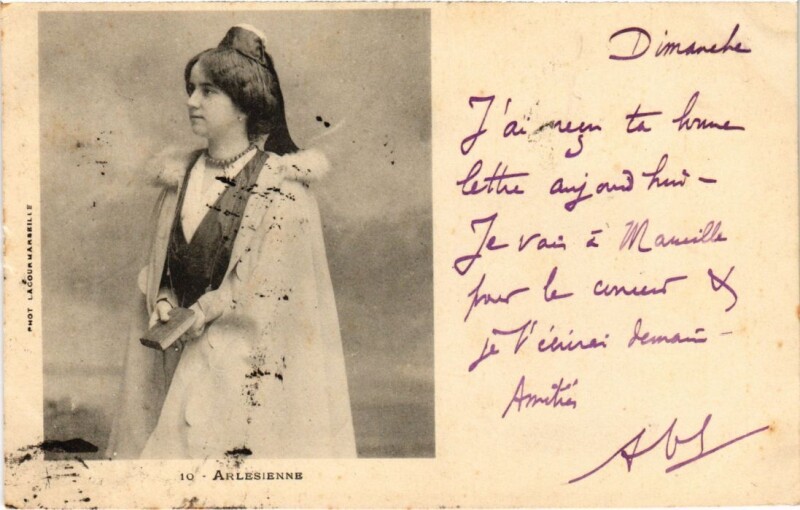 Dimanche
J'ai reçu ta bonne
lettre aujourd'hui -
Je vais à Marseille
pour le concert &
je t'écrirai demain -
Amitiés
PHOT LACOUR MARSEILLE
10 - ARLESIENNE